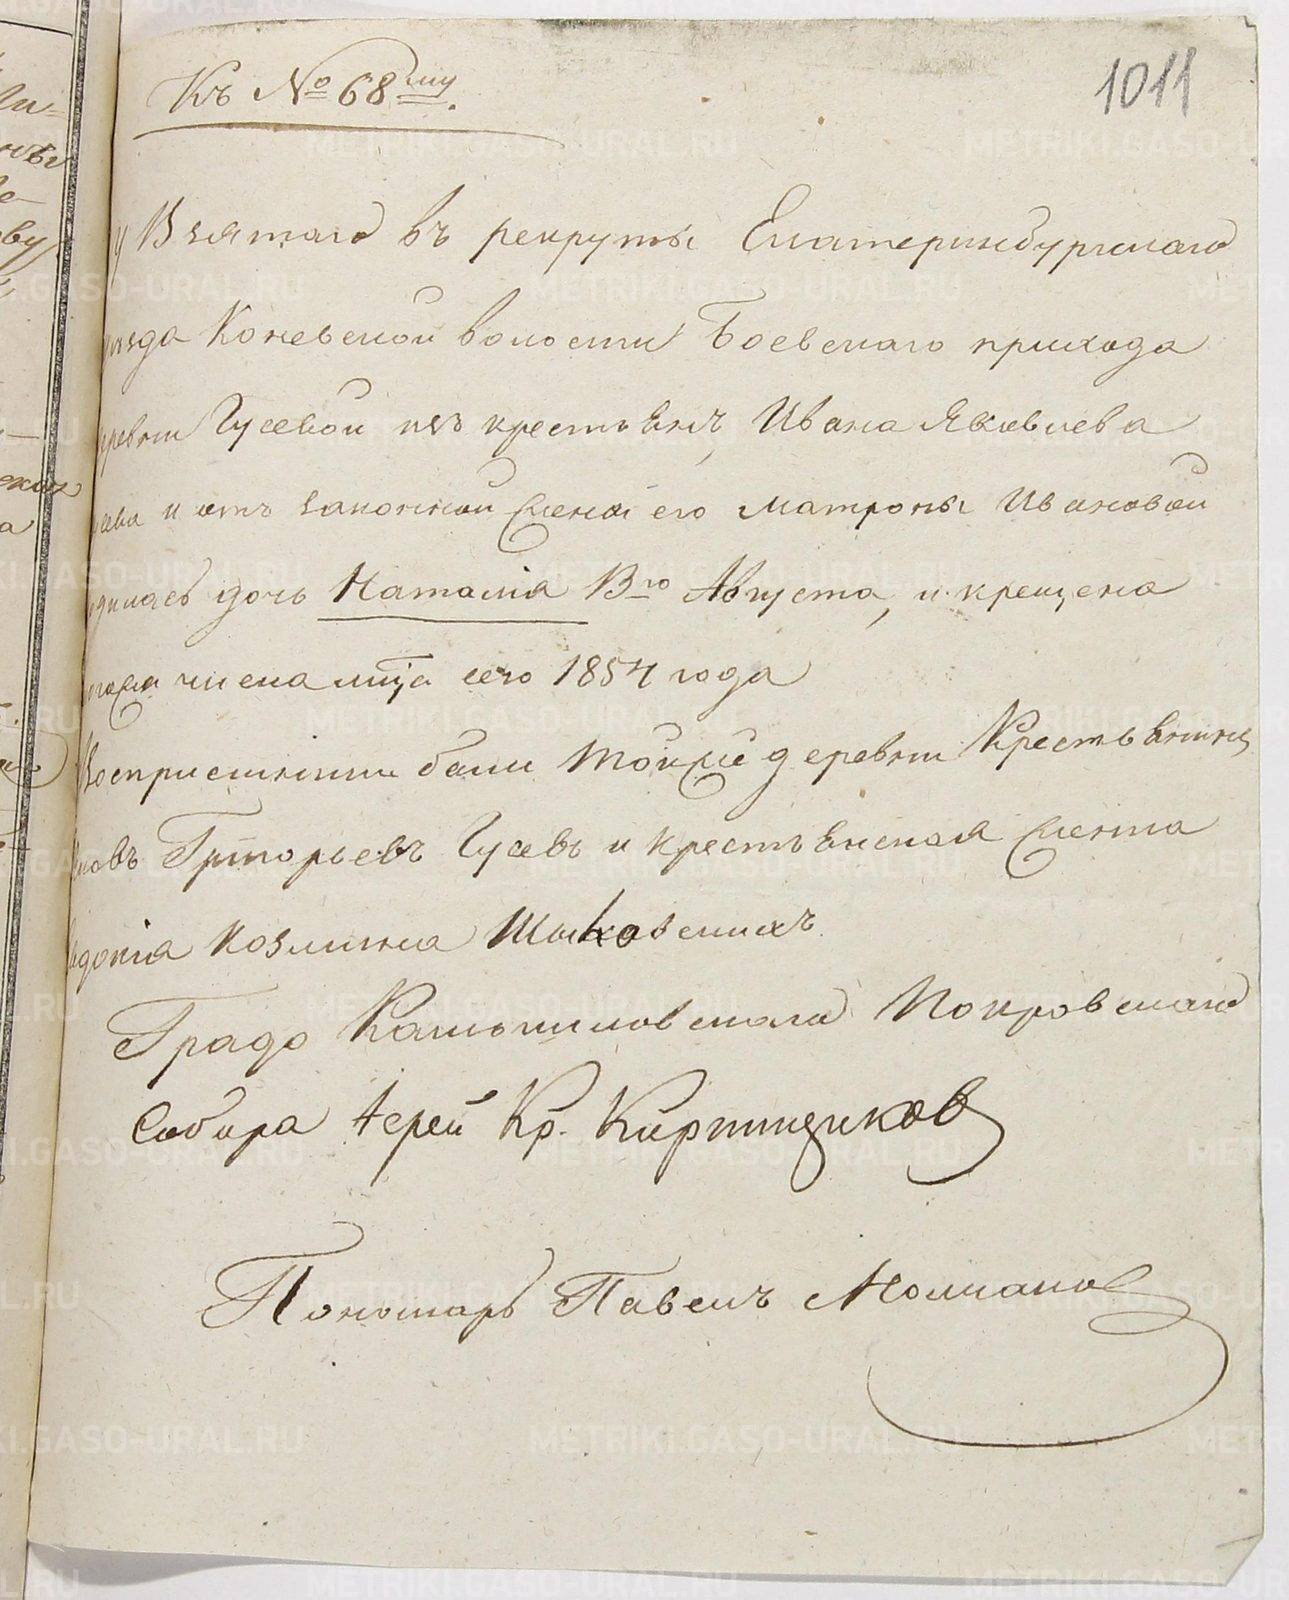 Къ № 68му.
1011
у Взятаго въ рекруты Екатеринбургскаго
уезда Коневской волости Боевскаго прихода
деревни Гусевой изъ крестьянъ, Ивана Яковлева
и отъ законной жены его Матроны Ивановой
родилась дочь Наталiя 8го Августа, и крещена
числа мца сего 1854 года
Воспрiемники были тойже деревни Крестьянинъ
Григорьевъ Гусевъ и крестьянская женка
Козмина
Градо Камышловскаго Покровскаго
Собора Iерей Кр. Кирпищиковъ
Пономарь Павелъ Молчановъ
METRIKI.GASO-URAL.RU